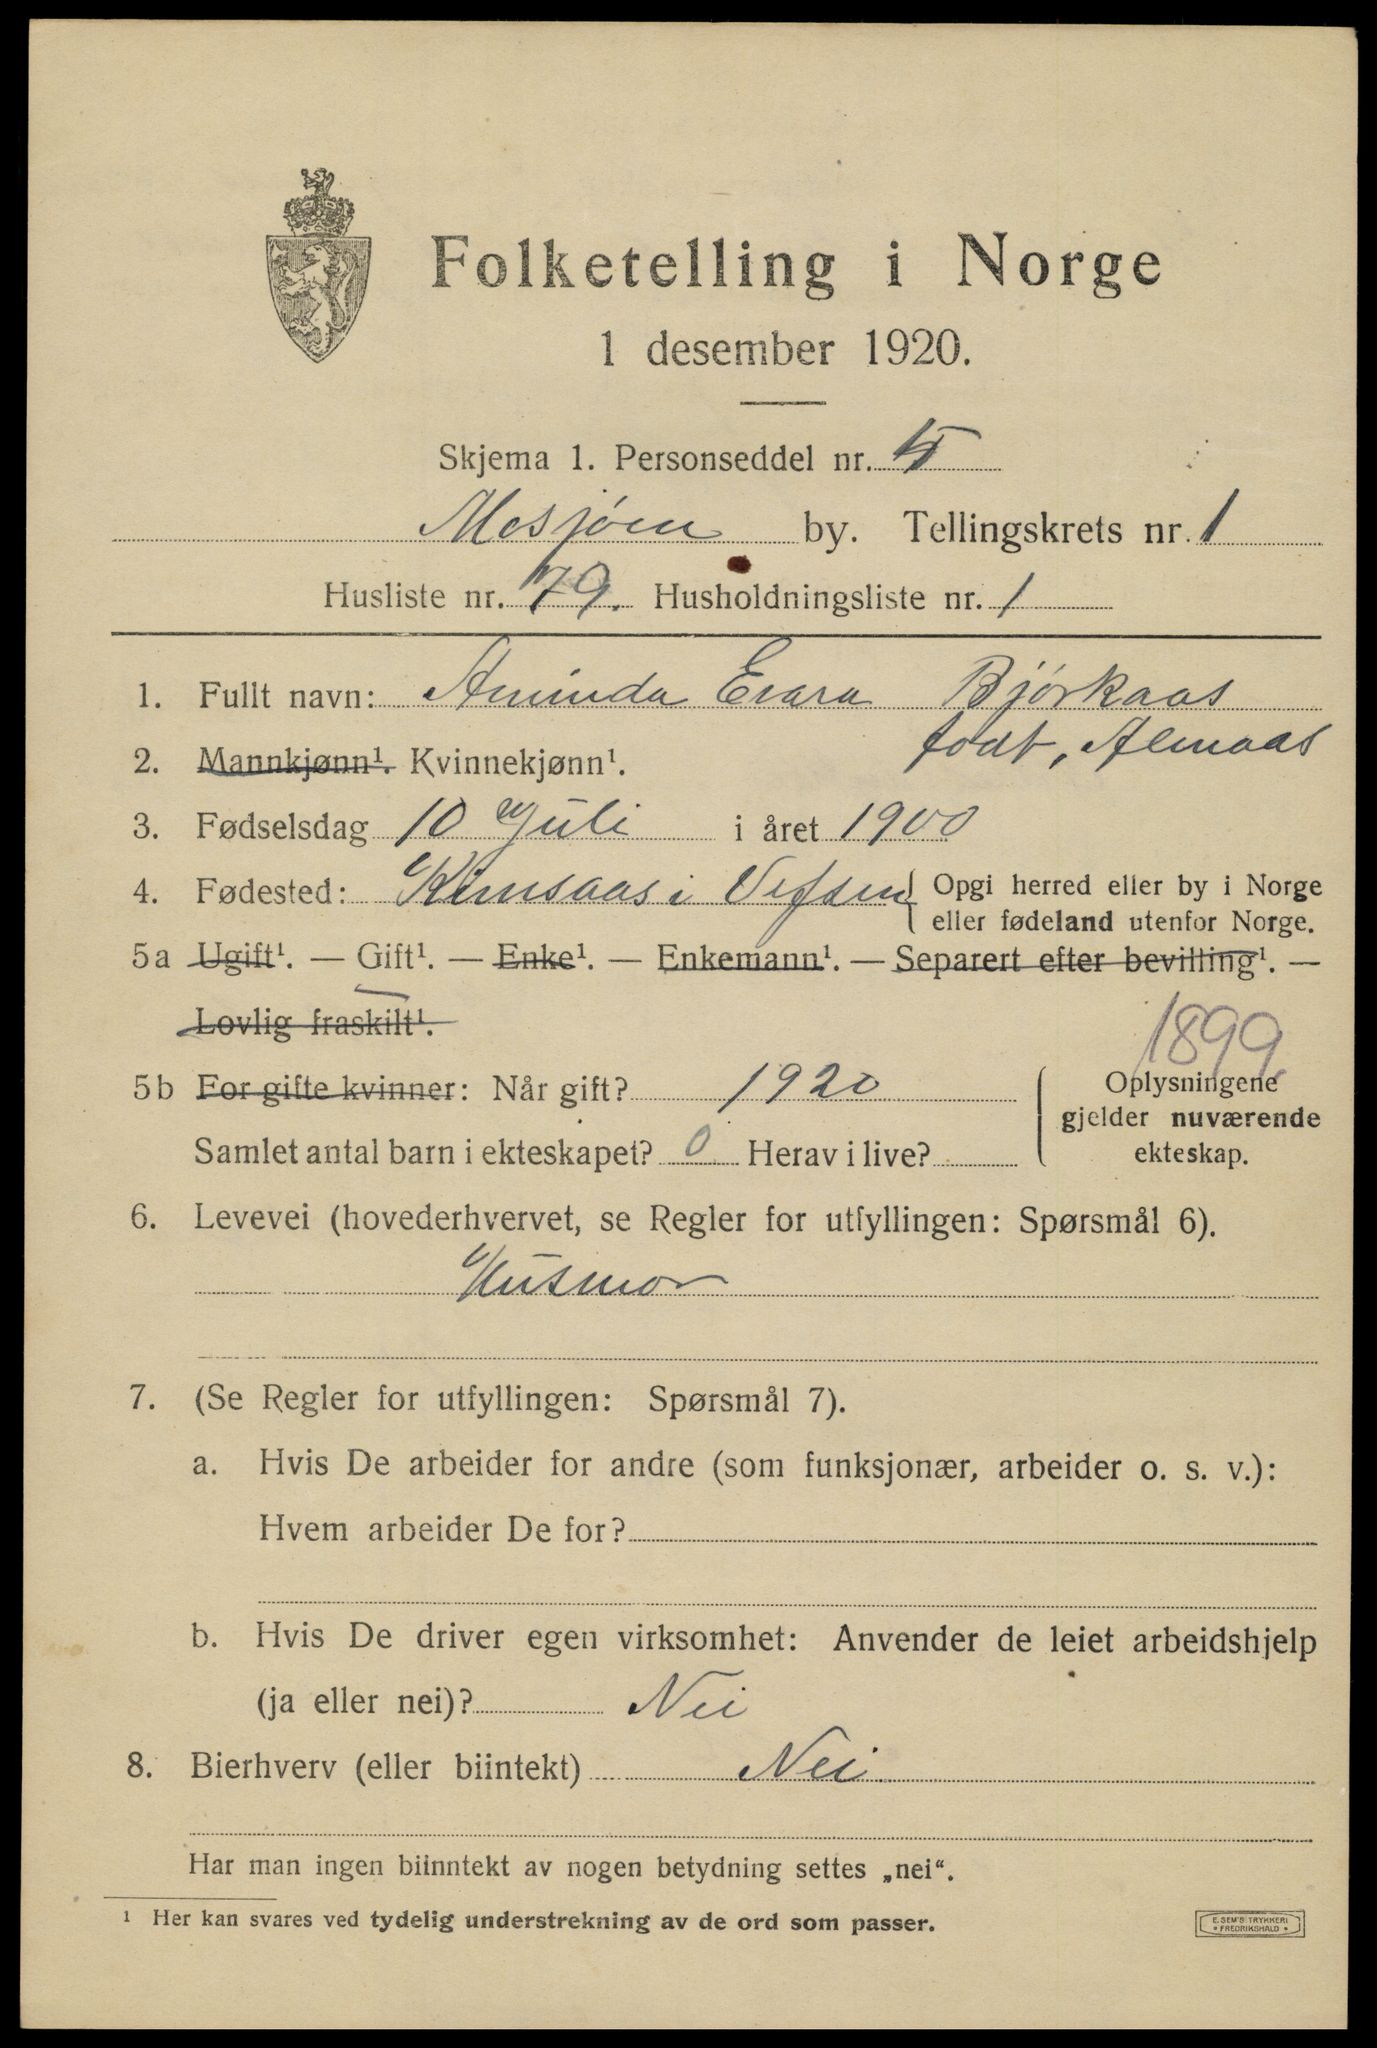 Folketelling i Norge
1 desember 1920.
Skjema 1. Personseddel nr.
Mosjøen by. Tellingskrets nr. 1
Husliste nr. 79. Husholdningsliste nr. 1
1. Fullt navn: Bjørkaas
født, Almaas
2. Mannkjønn¹. Kvinnekjønn¹.
3. Fødselsdag 10 Juli i året 1900
4. Fødested: i Vefsen { Opgi herred eller by i Norge
eller fødeland utenfor Norge.
5a Ugift¹. — Gift¹. — Enke¹. — Enkemann¹. — Separert efter bevilling¹. —
Lovlig fraskilt¹.
1899
5b For gifte kvinner: Når gift? 1920
Samlet antal barn i ekteskapet? 0 Herav i live?
Oplysningene
gjelder nuværende
ekteskap.
6. Levevei (hovederhvervet, se Regler for utfyllingen: Spørsmål 6).
Husmor
7. (Se Regler for utfyllingen: Spørsmål 7).
a. Hvis De arbeider for andre (som funksjonær, arbeider o. s. v.):
Hvem arbeider De for?
b. Hvis De driver egen virksomhet: Anvender de leiet arbeidshjelp
(ja eller nei)? Nei
8. Bierhverv (eller biintekt) Nei
Har man ingen biinntekt av nogen betydning settes „nei“.
¹ Her kan svares ved tydelig understrekning av de ord som passer.
E. SEM'S TRYKKERI
• FREDRIKSHALD •